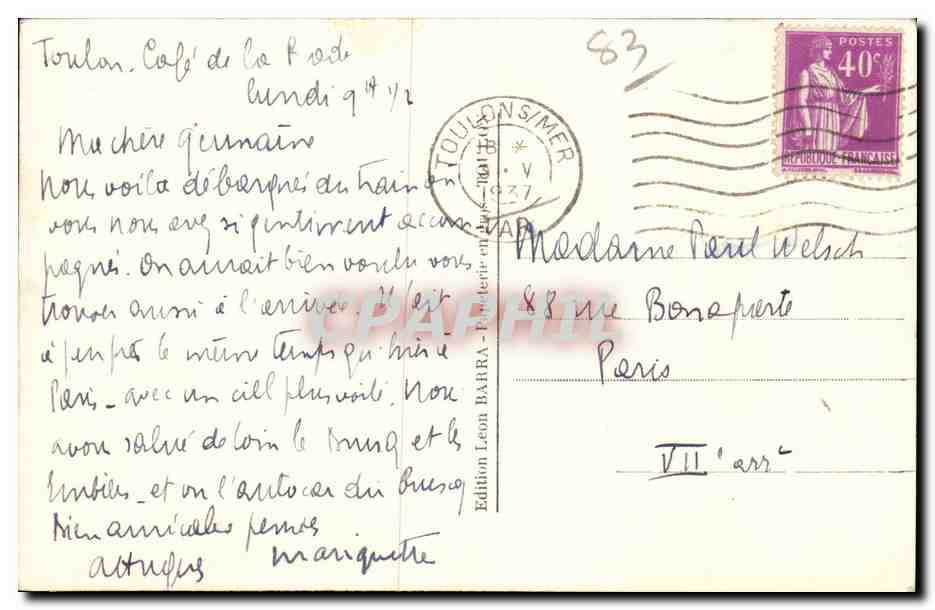 Toulon. Café de la Rade
lundi 9h 1/2
Ma chère Germaine
Nous voila débarqués du train où
vous nous avez si gentiment accom
pagnés. On aurait bien voulu vous
trouver aussi à l'arrivée. Il fait
à peu près le même temps qu'hier à
Paris - avec un ciel plus voilé. Nous
avons salué de loin le Brusq et les
Embiez - et vu l'autocar du Brusq
Bien amicales pensées
Mariquette
83
TOULON S/MER
18 *
V
1937
VAR
POSTES
40c
REPUBLIQUE FRANÇAISE
Madame Paul Welsch
88 rue Bonaparte
Paris
VII arrt
Edition Léon BARRA - Papeterie en gros - TOULON
CPAPHIL